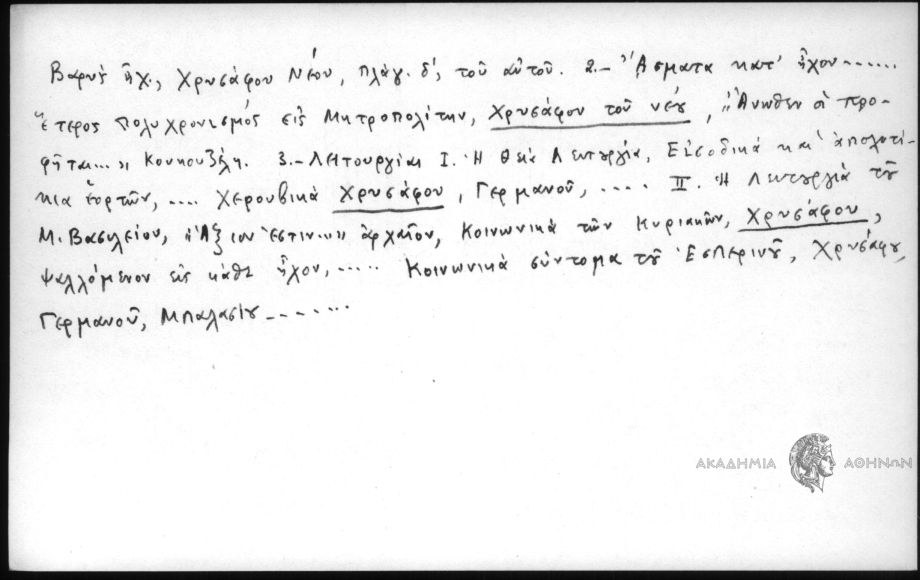 Βαρὺς ἦχ., Χρυσάφου Νέου, πλάγ. δ', τοῦ αὐτοῦ. 2.- "Ἄσματα κατ' ἦχον......
ἕτερος πολυχρονισμός εἰς Μητροπολίτην, Χρυσάφου τοῦ νέου, "Ἄνωθεν οἱ προ-
φῆται...» Κουκουζέλη. 3.- Λειτουργίαι I. Ἡ Θεία Λειτουργία, Εἰσοδικά καὶ ἀπολυτί-
κια ἑορτῶν, .... Χερουβικὰ Χρυσάφου, Γερμανοῦ, .... II. Ἡ Λειτουργιὰ τοῦ
Μ. Βασιλείου, «Ἄξιον Ἐστιν...» ἀρχαῖον, Κοινωνικά τῶν Κυριακῶν, Χρυσάφου,
ψαλλόμενον εἰς κάθε ἦχον, ..... Κοινωνικὰ σύντομα τοῦ Ἑσπερινοῦ, Χρυσάφου,
Γερμανοῦ, Μπαλασίου -------
ΑΚΑΔΗΜΙΑ ΑΘΗΝΩΝ